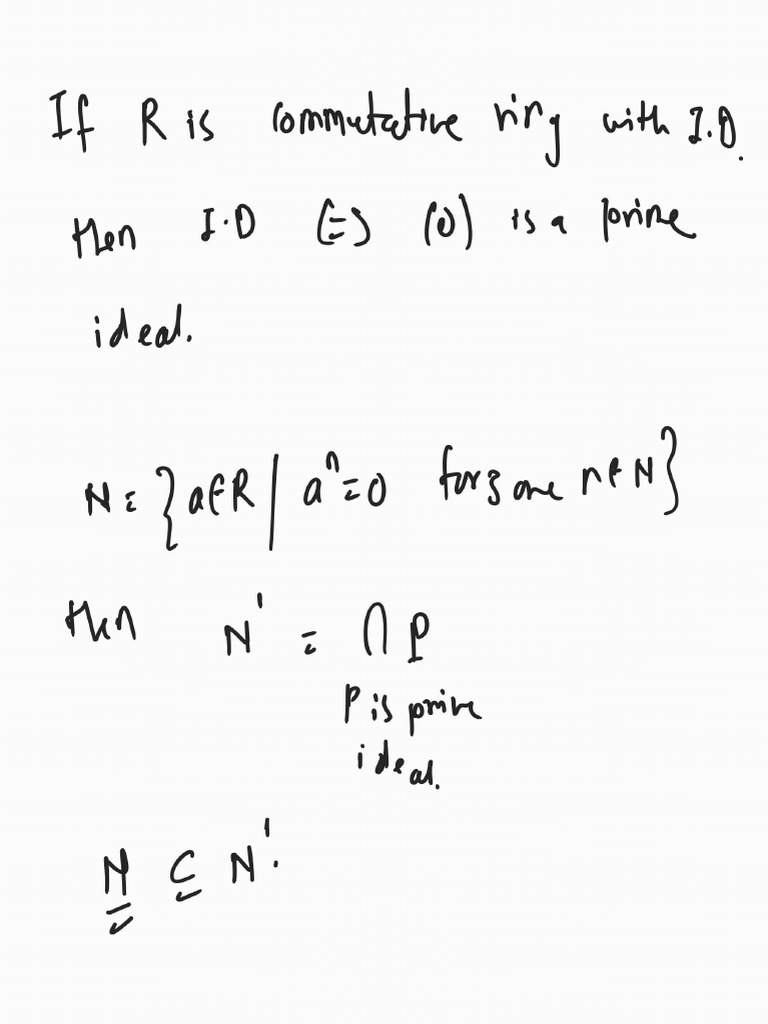 If R is commutative ring with I.D.
then I.D (=) (0) is a prime
ideal.
N = {a∈R | aⁿ=0 for some n∈N}
then N' = ∩ P
P is prime
ideal.
N ⊆ N'.